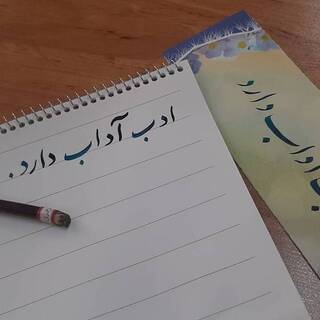 ادب آداب دارد.
ب آداب دارد